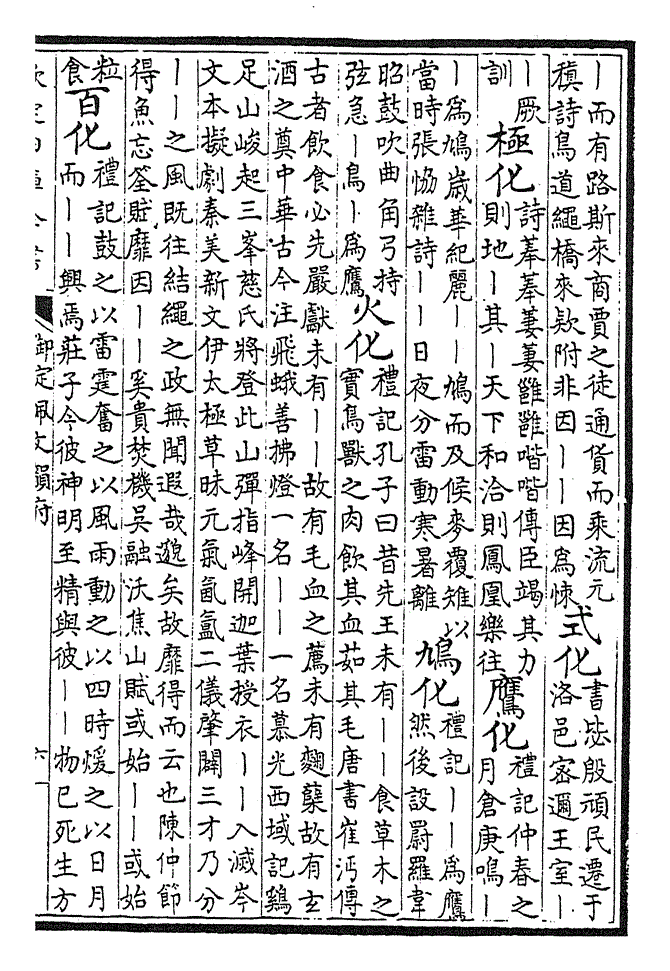 丨而有路斯來商賈之徒通貨而乘流元
稹詩鳥道繩橋來欵附非因丨丨因為悚
式化
書毖殷頑民遷于
洛邑宻邇王室丨
丨厥
訓
極化
詩菶菶萋萋雝雝喈喈傳臣竭其力
則地丨其丨天下和洽則鳳凰樂往
鷹化
禮記仲春之
月倉庚鳴丨
丨為鳩歲華紀麗丨丨鳩而及候麥覆雉以
當時張恊雜詩丨丨日夜分雷動寒暑離
鳩化
禮記丨丨為鷹
然後設罻羅韋
昭鼓吹曲角弓持
弦急丨鳥丨為鷹
火化
禮記孔子曰昔先王未有丨丨食草木之
實鳥獸之肉飲其血茹其毛唐書崔沔傳
古者飲食必先嚴獻未有丨丨故有毛血之薦未有麴糵故有玄
酒之奠中華古今注飛蛾善拂燈一名丨丨一名慕光西域記鷄
足山峻起三峯慈氏將登此山彈指峰開迦葉授衣丨丨入滅岑
文本擬劇秦美新文伊太極草昧元氣氤氳二儀肇闢三才乃分
丨丨之風既往結繩之政無聞遐哉邈矣故靡得而云也陳仲節
得魚忘筌賦靡因丨丨奚貴焚機吳融沃焦山賦或始丨丨或始
粒
食
百化
禮記鼓之以雷霆奮之以風雨動之以四時煖之以日月
而丨丨興焉莊子今彼神明至精與彼丨丨物已死生方
欽定四庫全書
御定佩文韻府